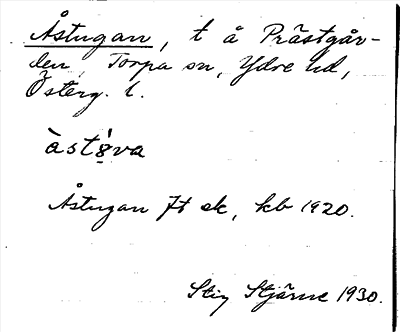 Åstugan, t å Prästgår-
den, Torpa sn, Ydre hd,
Österg. l.
àst8̣́va
Åstugan Jt ek, kb 1920.
Stig Stjärne 1930.